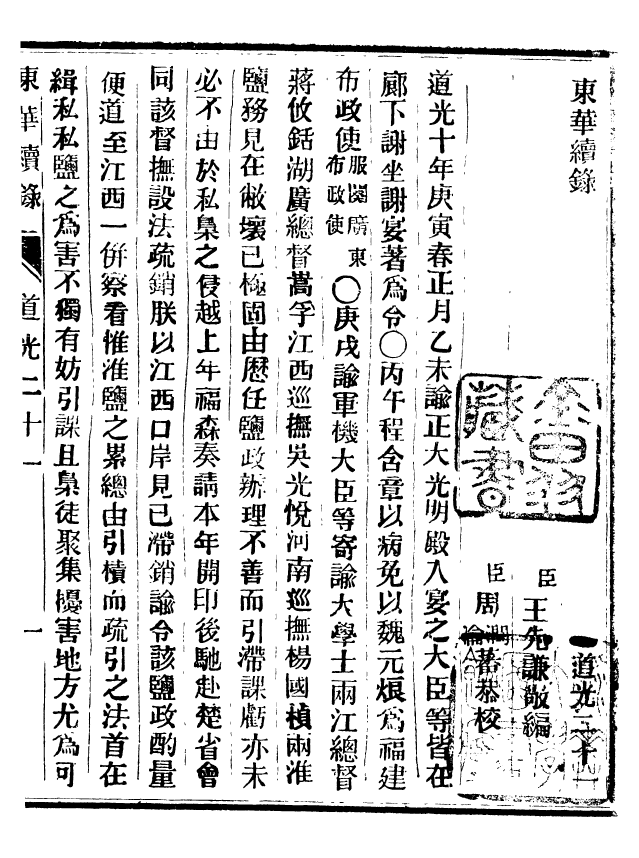 東華續錄
道光二十一
臣王先謙敬編
臣周潤蕃恭校
道光十年庚寅春正月乙未諭正大光明殿入宴之大臣等皆在
廊下謝坐謝宴著爲令○丙午程含章以病免以魏元烺爲福建
布政使服闋廣東布政使○庚戌諭軍機大臣等寄諭大學士兩江總督
蔣攸銛湖廣總督嵩孚江西巡撫吳光悅河南巡撫楊國楨兩淮
鹽務見在敝壞已極固由歷任鹽政辦理不善而引滯課虧亦未
必不由於私梟之侵越上年福森奏請本年開印後馳赴楚省會
同該督撫設法疏銷朕以江西口岸見已滯銷諭令該鹽政酌量
便道至江西一併察看惟淮鹽之累總由引積而疏引之法首在
緝私私鹽之爲害不獨有妨引課且梟徒聚集擾害地方尤爲可
東華續錄 道光二十一 一
藏書